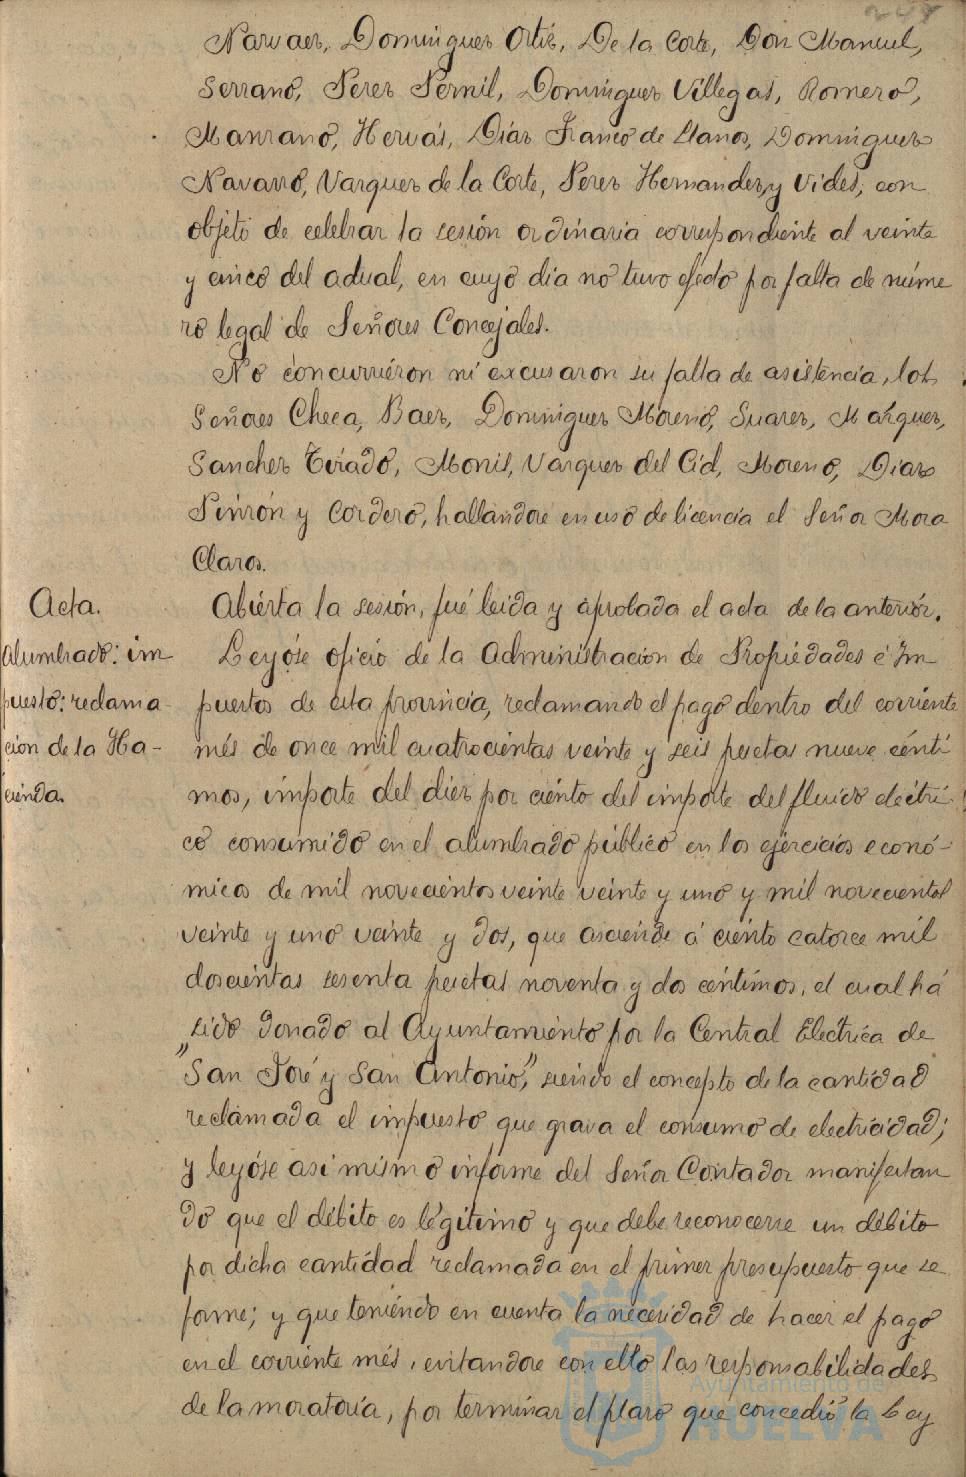 248
Narvaez, Dominguez Ortiz, De la Corte, Don Manuel,
Serrano, Perez Pernil, Dominguez Villegas, Romero,
Manzano, Hervás, Diaz Franco de Llanos, Dominguez
Navarro, Vazquez de la Corte, Perez Hernandez, y Vides, con
objeto de celebrar la sesión ordinaria correspondiente al veinte
y cinco del actual, en cuyo dia no tuvo efecto por falta de núme
ro legal de Señores Concejales.
No concurrieron ni excusaron su falta de asistencia, los
Señores Checa, Baez, Dominguez Moreno, Suarez, Márquez,
Sanchez Tirado, Monis, Vazquez del Cid, Moreno, Diaz
Pinzón y Cordero, hallandose en uso de licencia el Señor Mora
Claros.
Acta.
Abierta la sesión, fué leida y aprobada el acta de la anterior.
Alumbrado: im
puesto: reclama-
ción de la Ha-
cienda.
Leyóse oficio de la Administracion de Propiedades é Im
puestos de esta provincia, reclamando el pago dentro del corriente
més de once mil cuatrocientas veinte y seis pesetas nueve cénti
mos, importe del diez por ciento del importe del fluido eléctri-
co consumido en el alumbrado público en los ejercicios econó-
micos de mil novecientos veinte veinte y uno y mil novecientos
veinte y uno veinte y dos, que asciende á ciento catorce mil
doscientas sesenta pesetas noventa y dos céntimos, el cual há
sido donado al Ayuntamiento por la Central Eléctrica de
"San José y San Antonio", siendo el concepto de la cantidad
reclamada el impuesto que grava el consumo de electricidad;
y leyóse asi mismo informe del Señor Contador manifestan
do que el débito es légitimo y que debe reconocerse un débito
por dicha cantidad reclamada en el primer presupuesto que se
forme; y que teniendo en cuenta la necesidad de hacer el pago
en el corriente més, evitandose con ello las responsabilidades
de la moratoria, por terminar el plazo que concedió la Ley
Ayuntamiento de
HUELVA